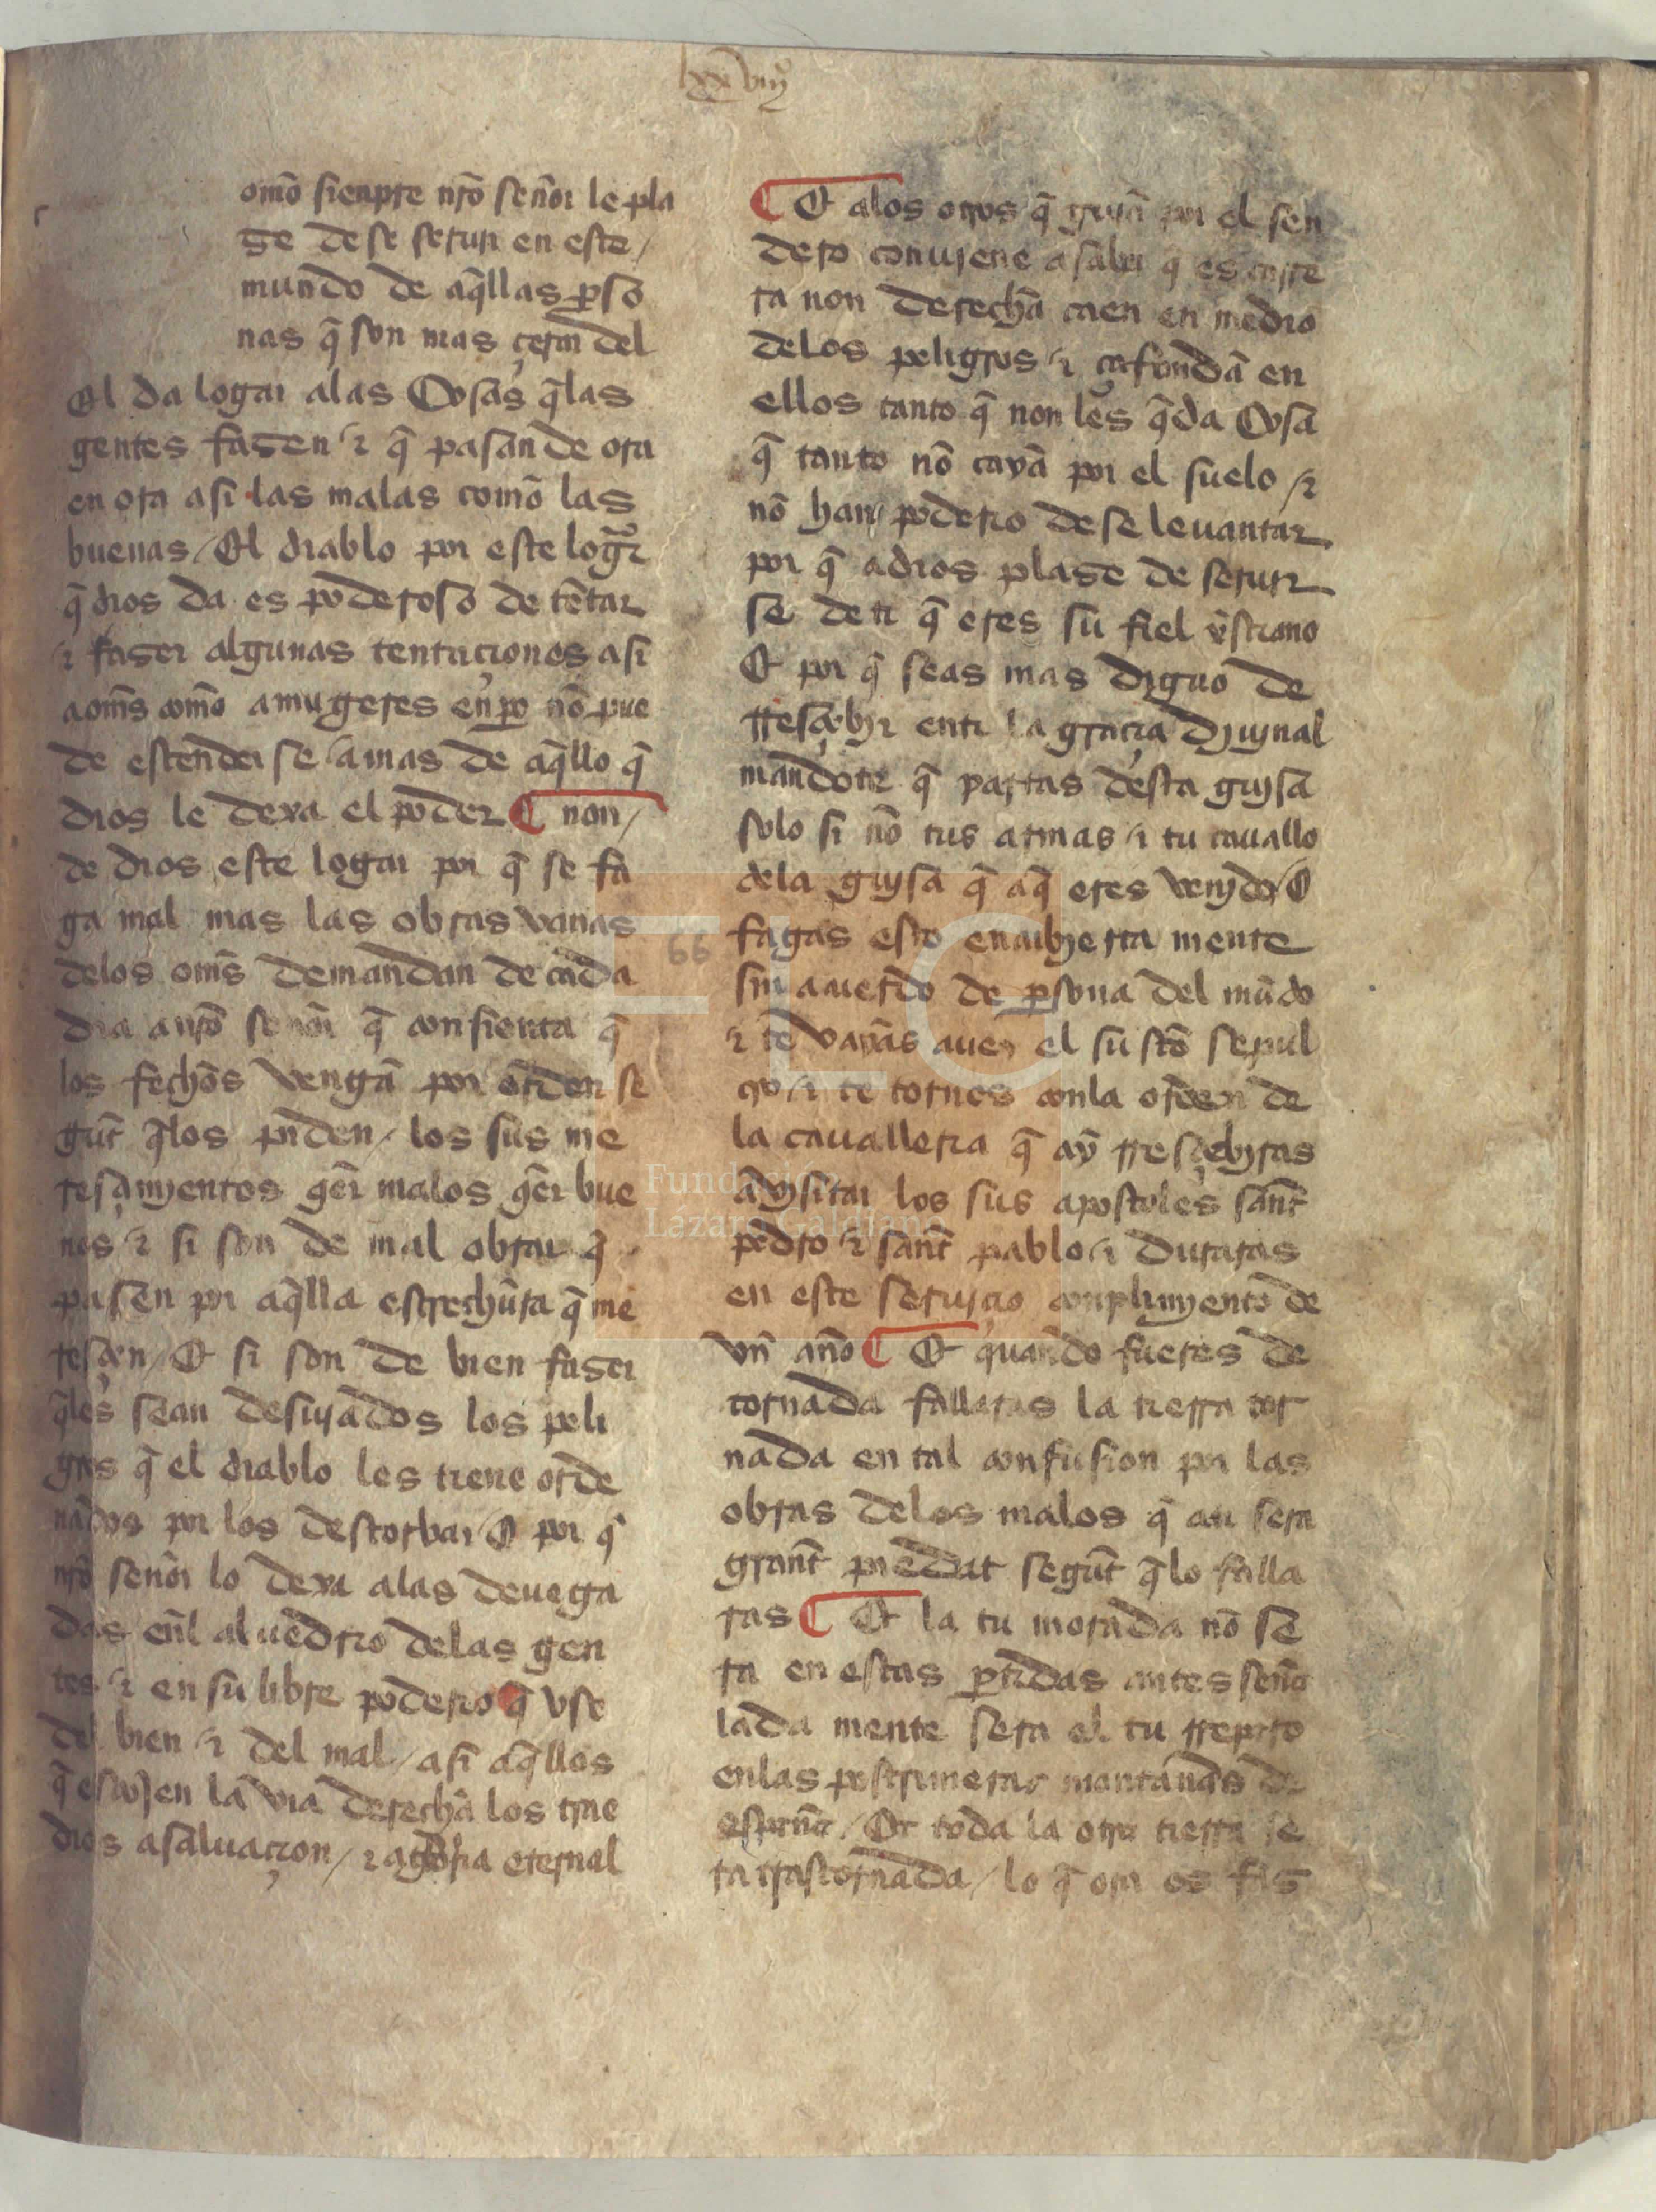 lxxviijº
omõ sienpre nr̃o señor le pla
ze de se seruir en este /
mundo de aq̃llas ꝑso
nas q̃ son mas çerca del
El da logar alas Cosas q̃ las
gentes fazen ⁊ q̃ pasan de ora
en ora asi las malas comõ las
buenas / El diablo por este logar
q̃ dios da es poderoso de tẽtar
⁊ fazer algunas tentaciones asi
a om̃s comõ a mugeres enꝑo nõ pue
de estender se a mas de aq̃llo q̃
dios le dexa el poder ¶ non /
de dios este logar por q̃ se fa
ga mal mas las obras vanas
delos om̃s demandan de cada
dia a nr̃o señor q̃ consienta q̃
los fechos vengã por orden se
gũt q̃ los piden / los sus me
resçimyentos q̃er malos q̃er bue
nos ⁊ si son de mal obrar q̃
pasen por aq̃lla estrechura q̃ me
resçen / Et si son de bien fazer
q̃ les sean desuyados los peli
gros q̃ el diablo les tiene orde
nados por los destorbar / O por q̃
nr̃o señor lo dexa alas deuega
das enl aluedrio delas gen
tes ⁊ en su libre poderio q̃ vse
del bien ⁊ del mal / asi aq̃llos
q̃ escojen la via derecha los trae
dios a saluaçion / ⁊ a gloria eternal
¶ Et alos otros q̃ guyã por el sen
dero conuyene a saber q̃ es carre
ra non derecha caen en medio
delos peligros ⁊ çafondã en
ellos tanto q̃ non les q̃da Cosa
q̃ tanto nõ cayã por el suelo ⁊
nõ han poderio de se leuantar
por q̃ a dios plaze de seruir
se de ti q̃ eres su fiel xp̃stiano
Et por q̃ seas mas digno de
rresçebyr en ti la graçia diuynal
mandote q̃ partas desta guysa
solo si nõ tus armas ⁊ tu cauallo
dela guysa q̃ aq̃ eres venydo / O
fagas esto encubyerta mente
sin acuerdo de ꝑsona del mũdo
⁊ te vayas auer el su sto sepul
cro ⁊ te tornes con la orden de
la caualleria q̃ ay rresçebyras
a vysitar los sus apostoles sant
pedro ⁊ sant pablo ⁊ duraras
en este seruyçio conplimyento de
vn año ¶ Et quando fueres de
tornada fallaras la tierra tor
nada en tal confusion por las
obras delos malos q̃ au sera
grant piedat segũt q̃ lo falla
ras ¶ Et la tu morada nõ se
ra en estas ꝑtidas antes seña
lada mente sera el tu rrepto
enlas postrimeras montañas de
españa / Et toda la otra tierra se
ra trastornada / lo q̃ ora es fas
66
FLG
Fundación
Lázaro Galdiano